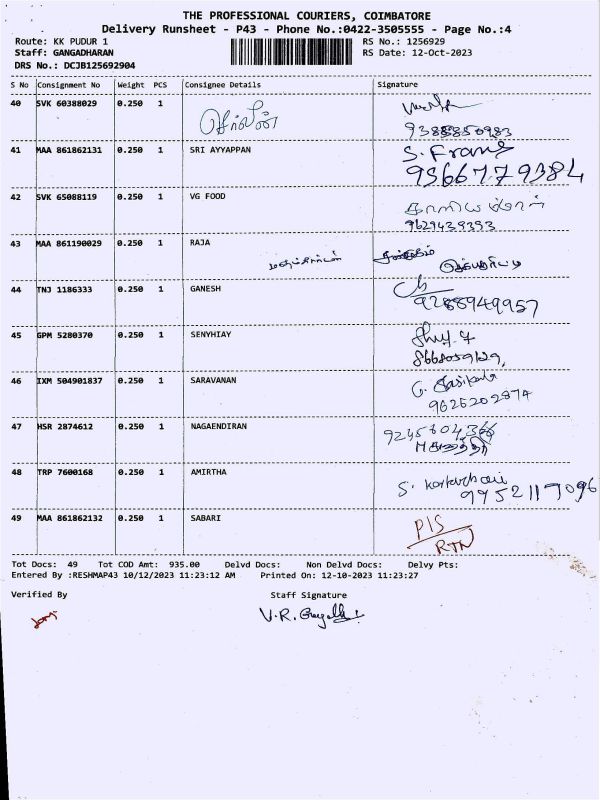 THE PROFESSIONAL COURIERS, COIMBATORE
Delivery Runsheet - P43 - Phone No.:0422-3505555 - Page No.:4
Route: KK PUDUR 1 RS No.: 1256929
Staff: GANGADHARAN RS Date: 12-Oct-2023
DRS No.: DCJB125692904
S No Consignment No Weight PCS Consignee Details Signature
40 SVK 60388029 0.250 1 செல்வி
9388850983
41 MAA 861862131 0.250 1 SRI AYYAPPAN S. Frans
9566779384
42 SVK 65088119 0.250 1 VG FOOD
9629439393
43 MAA 861190029 0.250 1 RAJA
44 TNJ 1186333 0.250 1 GANESH
9288949957
45 GPM 5280370 0.250 1 SENYHIAY
8668059129,
46 IXM 504901837 0.250 1 SARAVANAN G. Sasikala
9626202874
47 HSR 2874612 0.250 1 NAGAENDIRAN 9245604366
48 TRP 7600168 0.250 1 AMIRTHA S.
9952117096
49 MAA 861862132 0.250 1 SABARI PIS
RTN
Tot Docs: 49 Tot COD Amt: 935.00 Delvd Docs: Non Delvd Docs: Delvy Pts:
Entered By :RESHMAP43 10/12/2023 11:23:12 AM Printed On: 12-10-2023 11:23:27
Verified By Staff Signature
V.R.